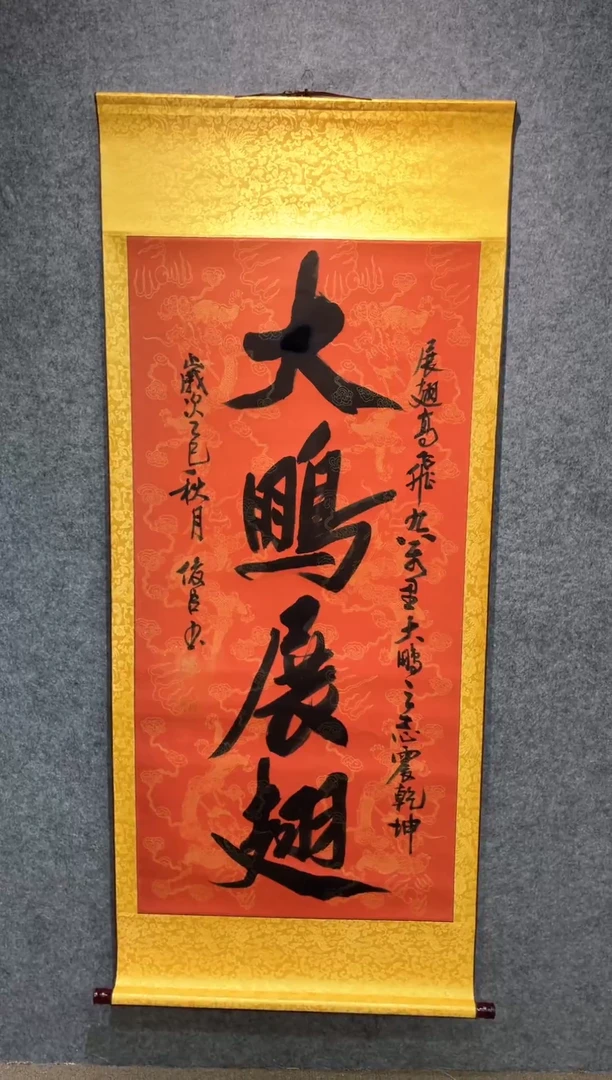 展翅高飛九萬里大鵬之志震乾坤
大鵬展翅
歲次乙巳秋月 俊昌书